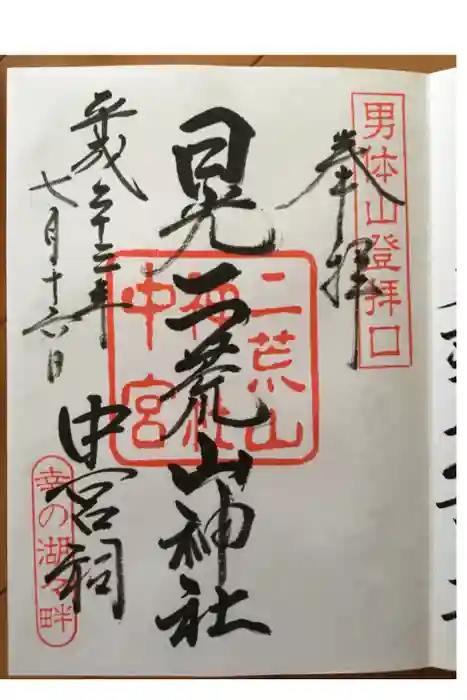 男体山登拝口
奉拝
日光二荒山神社
二荒山
神社
中宮
中宮祠
平成二十三年
七月十六日
幸の湖々畔